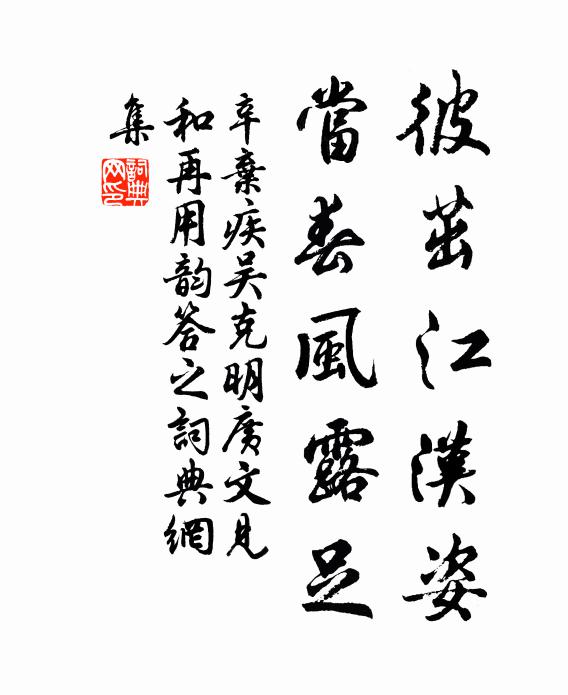 彼茁江漢姿
當春風露足
辛棄疾吳克明廣文見
和再用韵答之詞典網
集
詞典
网印